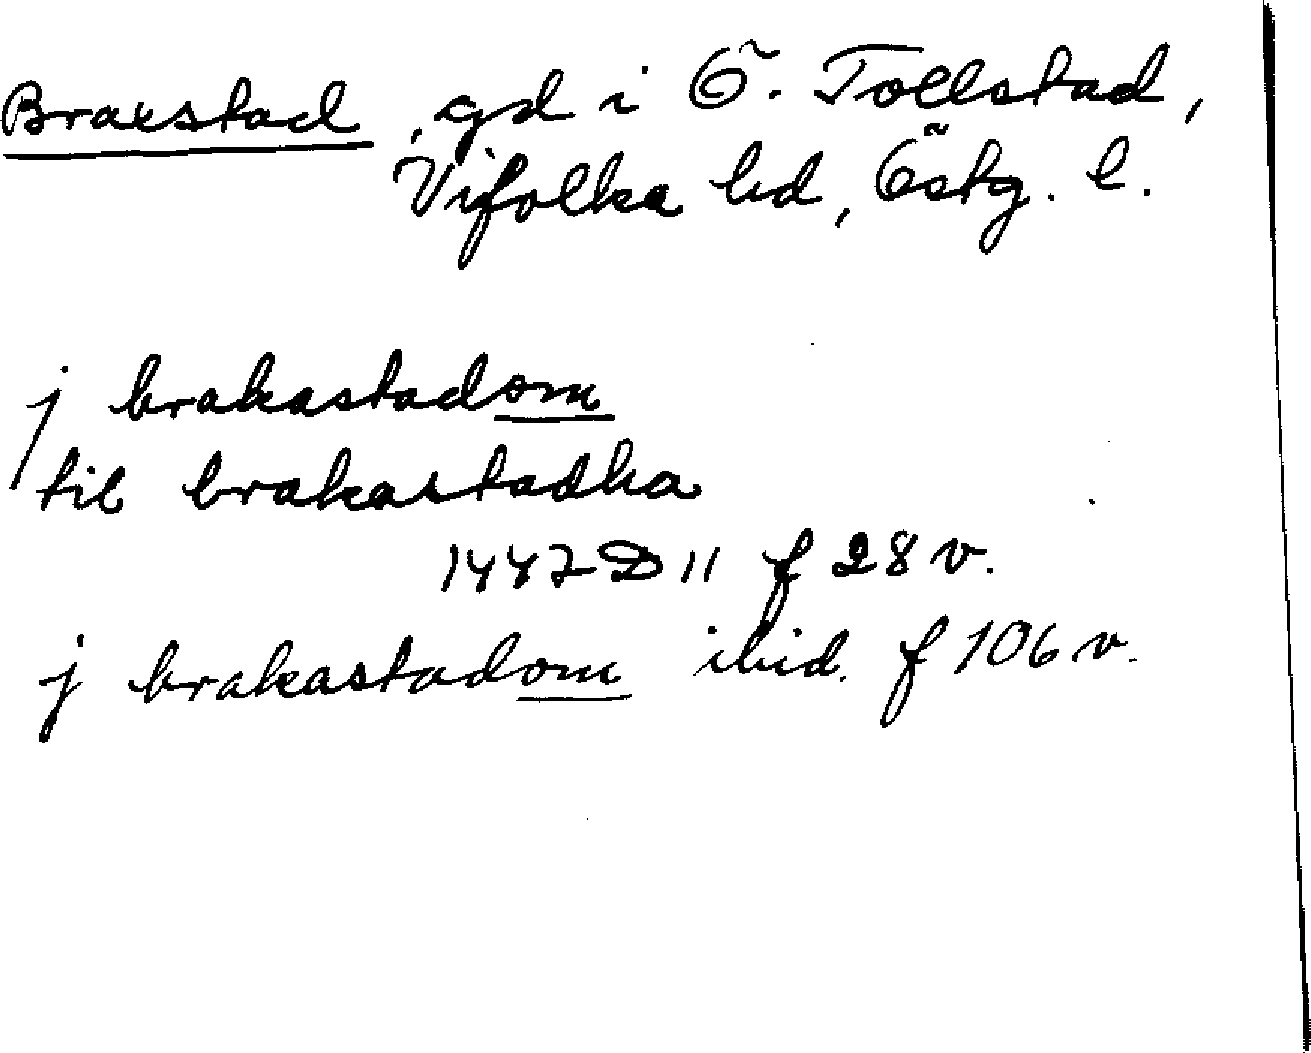 Braxstad, gd i Ö. Tollstad,
Vifolka hd, Östg. l.
j brakastadom
til brakastadha
1447 D 11 f 28 v.
j brakastadom ibid. f 106 v.